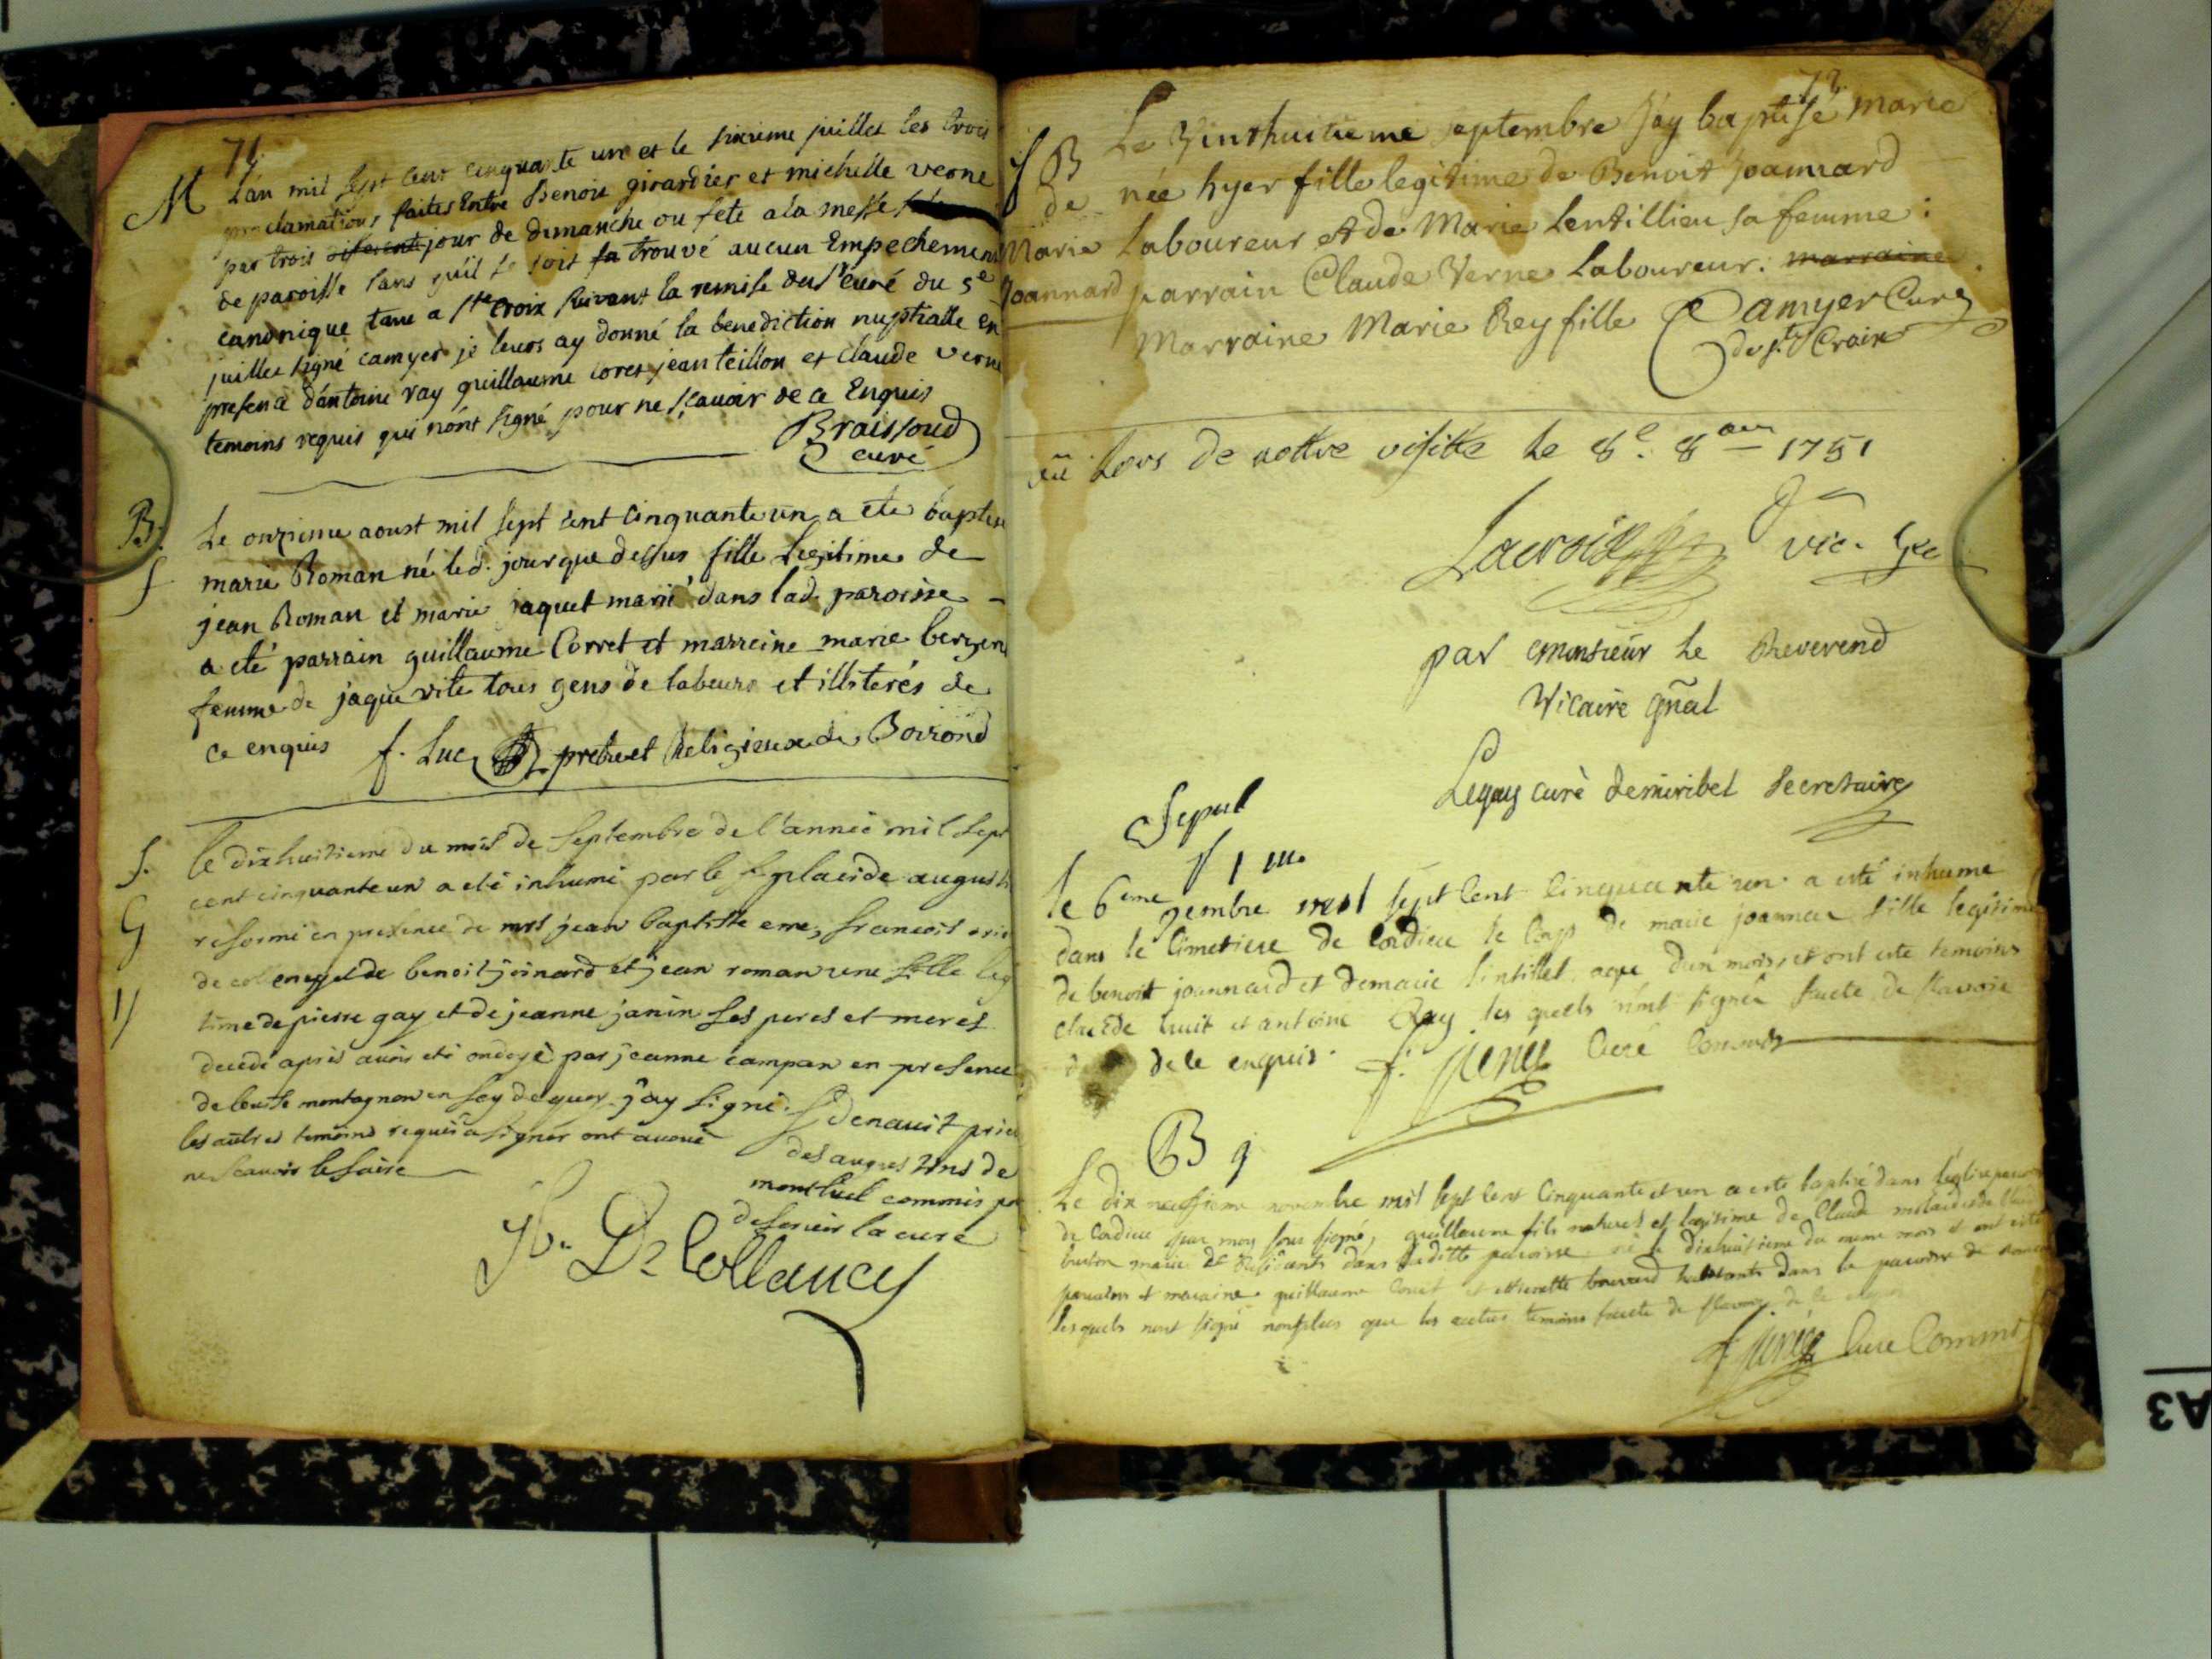 71
M L'an mil sept cent cinquante un et le sixieme juillet les trois
proclamations faites Entre Benoit girardier et michelle verne
par trois jour de dimanche ou fete a la messe
de paroisse sans qu'il se soit trouvé aucun Empechement
canonique tant a Ste croix suivant la remise du Sr curé du 5e
juillet signé camyer je leurs ay donné la benediction nuptialle en
presence d'antoine ray guillaume coret jean teillon et claude verne
temoins requis qui n'ont signé pour ne sçavoir de ce Enquis
Braissoud
curé
B. Le onzieme aoust mil sept cent cinquante un a été baptisé
f marie Roman né led. jour que dessus fille legitime de
jean Roman et marie jaquet marié dans lad. paroisse
a été parrain guillaume Corret et marreine marie
femme de jaque vite tous gens de labeurs et illiterés de
ce enquis f. Luc pretre et Religieux de
S. le dixhuitieme du mois de septembre de l'année mil sept
G cent cinquante un a eté inhumé par le placide
reformé en presence de jean baptiste francois
de et de benoit joinard et jean roman une fille leg
time de pierre gay et de jeanne janin ses peres et meres
decedé apres avoir eté ondoyé par jeanne campan en presence
de montagnon en foy de quoy j'ay signé.
les autres temoins requis a signer ont avoué
ne scavoir le faire
denauit prieur
des augustins de
montluel commis
desservir la cure
De Collancy
72
f B Le Vinthuitieme septembre j'ay baptisé marie
de née hyer fille legitime de Benoit Joannard
Marie Laboureur et de Marie Lentillieu sa femme:
Joannard parrain Claude Verne Laboureur: marraine
Marraine Marie Rey fille Camyer Curé
de ste Croix
vû Lors de nottre visitte le 8e. 8bre 1751
Lacroix vic. Ge
par Monsieur le Reverend
Vicaire gñal
Legay curé de miribel Secretaire
Sepul
f 1 m.
le 6eme mil sept cent cinquante un a esté inhumé
dans le Cimetiere de Cordieu le Corps de marie joannar fille legitime
de benoit joannard et de marie lintillet agé d'un mois et ont esté temoins
claude et antoine Rey les quels n'ont signés faute de scavoir
de ce enquis. f. Curé Commis
B g
Le dix neufieme novembre mil sept cent Cinquante et un a esté baptisé dans l'eglise
de Cordieu par moy sous signé, guillaume fils naturel et legitime de Claude
mariés et residents dans laditte paroisse né le dixhuitieme du meme mois et ont esté
parain et maraine guillaume Corret et habitants dans la paroisse de
lesquels n'ont signé non plus que les autres temoins faute de scavoir de ce
Curé Commis
A3